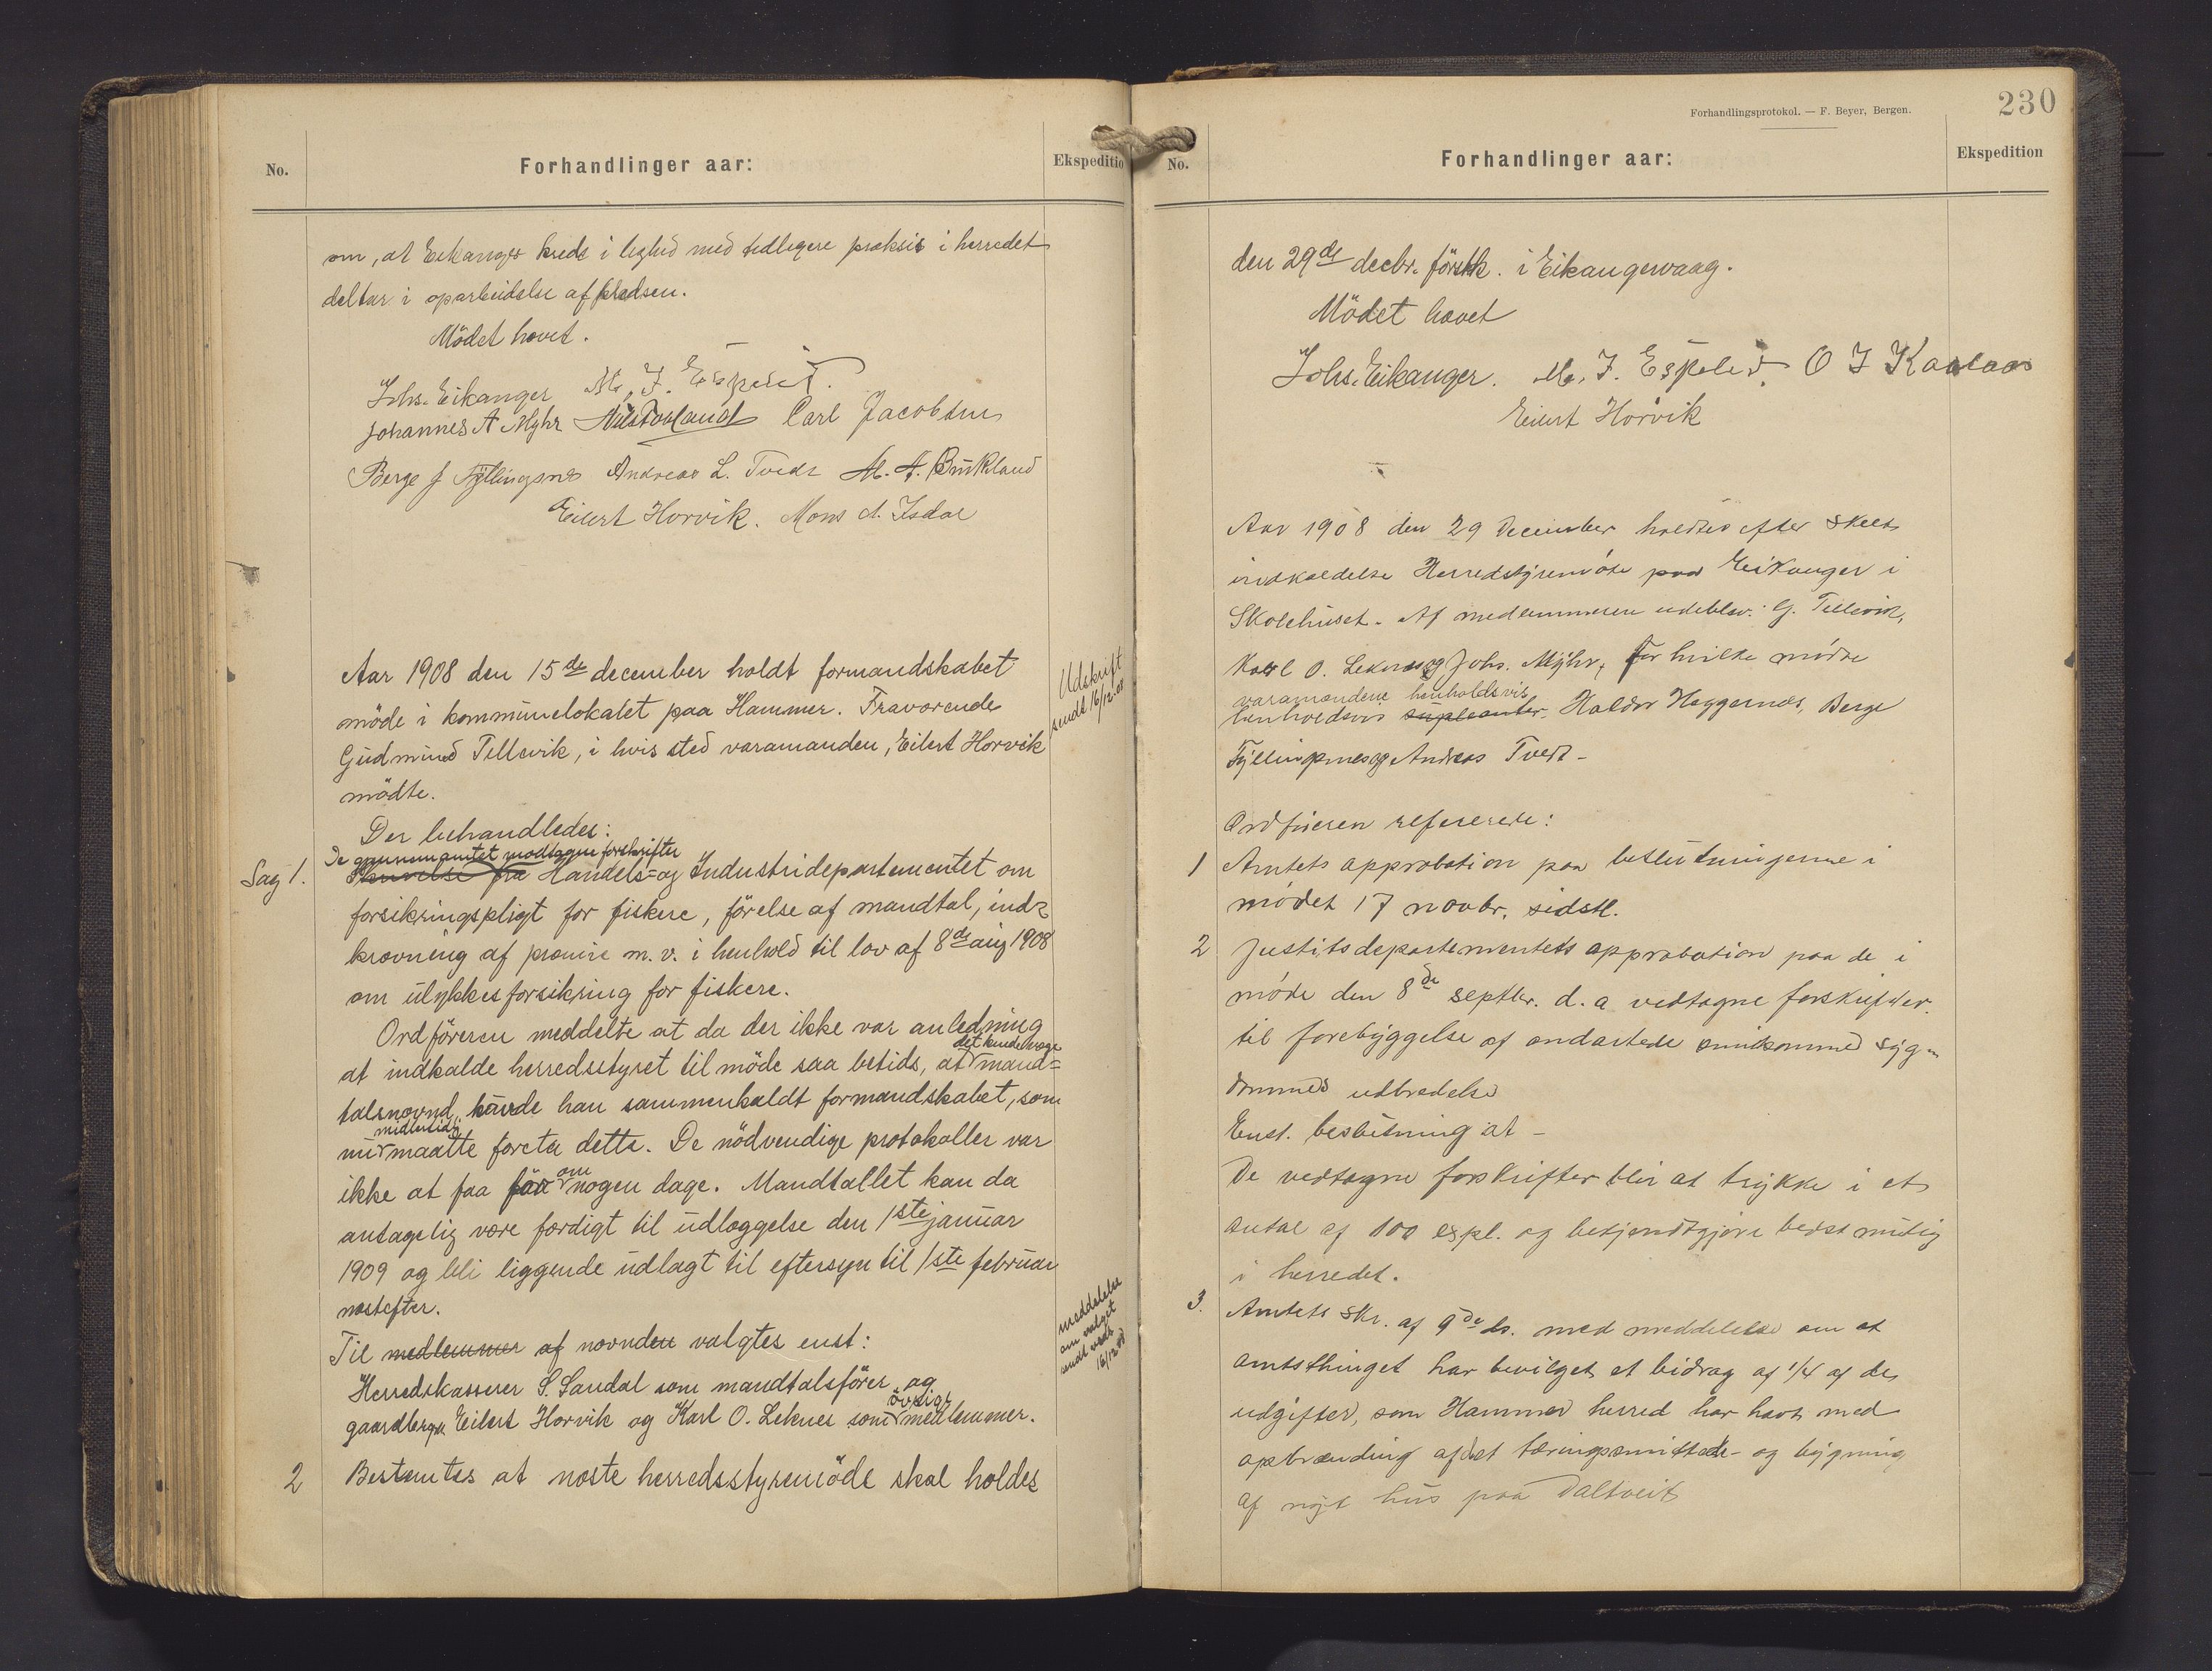 No.
Forhandlinger aar:
Ekspeditio
om, at Eikanger kreds i lighed med tidligere praksis i herredet
deltar i oparbeidelse af pladsen.
Mödet hævet.
Johs. Eikanger M. J. Espelid.
Johannes A Myhr Carl Jacobsen
Berge J Fyllingsnes Andreas L. Tvedt M. A. Birkland
Eilert Horvik. Mons A. Isdal
Aar 1908 den 15de december holdt formandskabet
möde i kommunelokalet paa Hammer. Fraværende
Gudmund Tellevik, i hvis sted varamanden, Eilert Horvik
mödte.
Udskrift
sendt 16/12-08
Der behandledes:
De gjennem amtet modtagne forskrifter
Sag 1. Skrivelse fra Handels- og Industridepartementet om
forsikringspligt for fiskere, förelse af mandtal, ind-
krævning af præmie m. v. i henhold til lov af 8de aug 1908
om ulykkesforsikring for fiskere.
Ordföreren meddelte at da der ikke var anledning
det kunde vælge
at indkalde herredsstyret til möde saa betids, at mand-
talsnævnd, havde han sammenkaldt formandskabet, som
midlertidig
nu maatte foreta dette. De nödvendige protokoller var
om
ikke at faa för nogen dage. Mandtallet kan da
antagelig være færdigt til udlæggelse den 1ste januar
1909 og bli liggende udlagt til eftersyn til 1ste februar
næstefter.
Til medlemmer af nævnden valgtes enst:
Herredskasserer S. Sandal som mandtalsförer og
övrige
gaardbrger Eilert Horvik og Karl O. Leknes som medlemmer.
meddelelse
om valget
sendt vedk.
16/12 08
2 Bestemtes at næste herredsstyremöde skal holdes
Forhandlingsprotokol. — F. Beyer, Bergen.
230
No.
Forhandlinger aar:
Ekspedition
den 29de decbr. förstk. i Eikangervaag.
Mödet hævet
Johs. Eikanger. M. J. Espelid. O J Kaalaas
Eilert Horvik
Aar 1908 den 29 December holdtes efter skeet
indkaldelse Herredstyremöte paa Eikanger i
Skolehuset. Af medlemmerne udeblev: G. Tellevik,
Karl O. Leknes og Johs. Myhr, for hvilke mödte
varamændene henholdsvis
henholdsvis supleanter. Haldor Hæggernæs, Berge
Fyllingsnes og Andreas Tvedt -
Ordförern refererede:
1 Amtets approbation paa beslutningerne i
mödet 17 novbr. sidstl.
2 Justitsdepartementets approbation paa de i
möde den 8de septbr. d. a vedtagne forskrifter
til forebyggelse af ondartede smitsomme syg-
dommes udbredelse
Enst. beslutning at -
De vedtagne forskrifter blir at trykke i et
antal af 100 expl. og bekjendtgjøre bedst mulig
i herredet.
3. Amtets skr. af 9de ds. med meddelelse om at
amtsthinget har bevilget et bidrag af 1/4 af de
udgifter, som Hammer herred har havt med
opbrænding af det tæringsmittede- og bygning
af nyt hus paa Daltveit